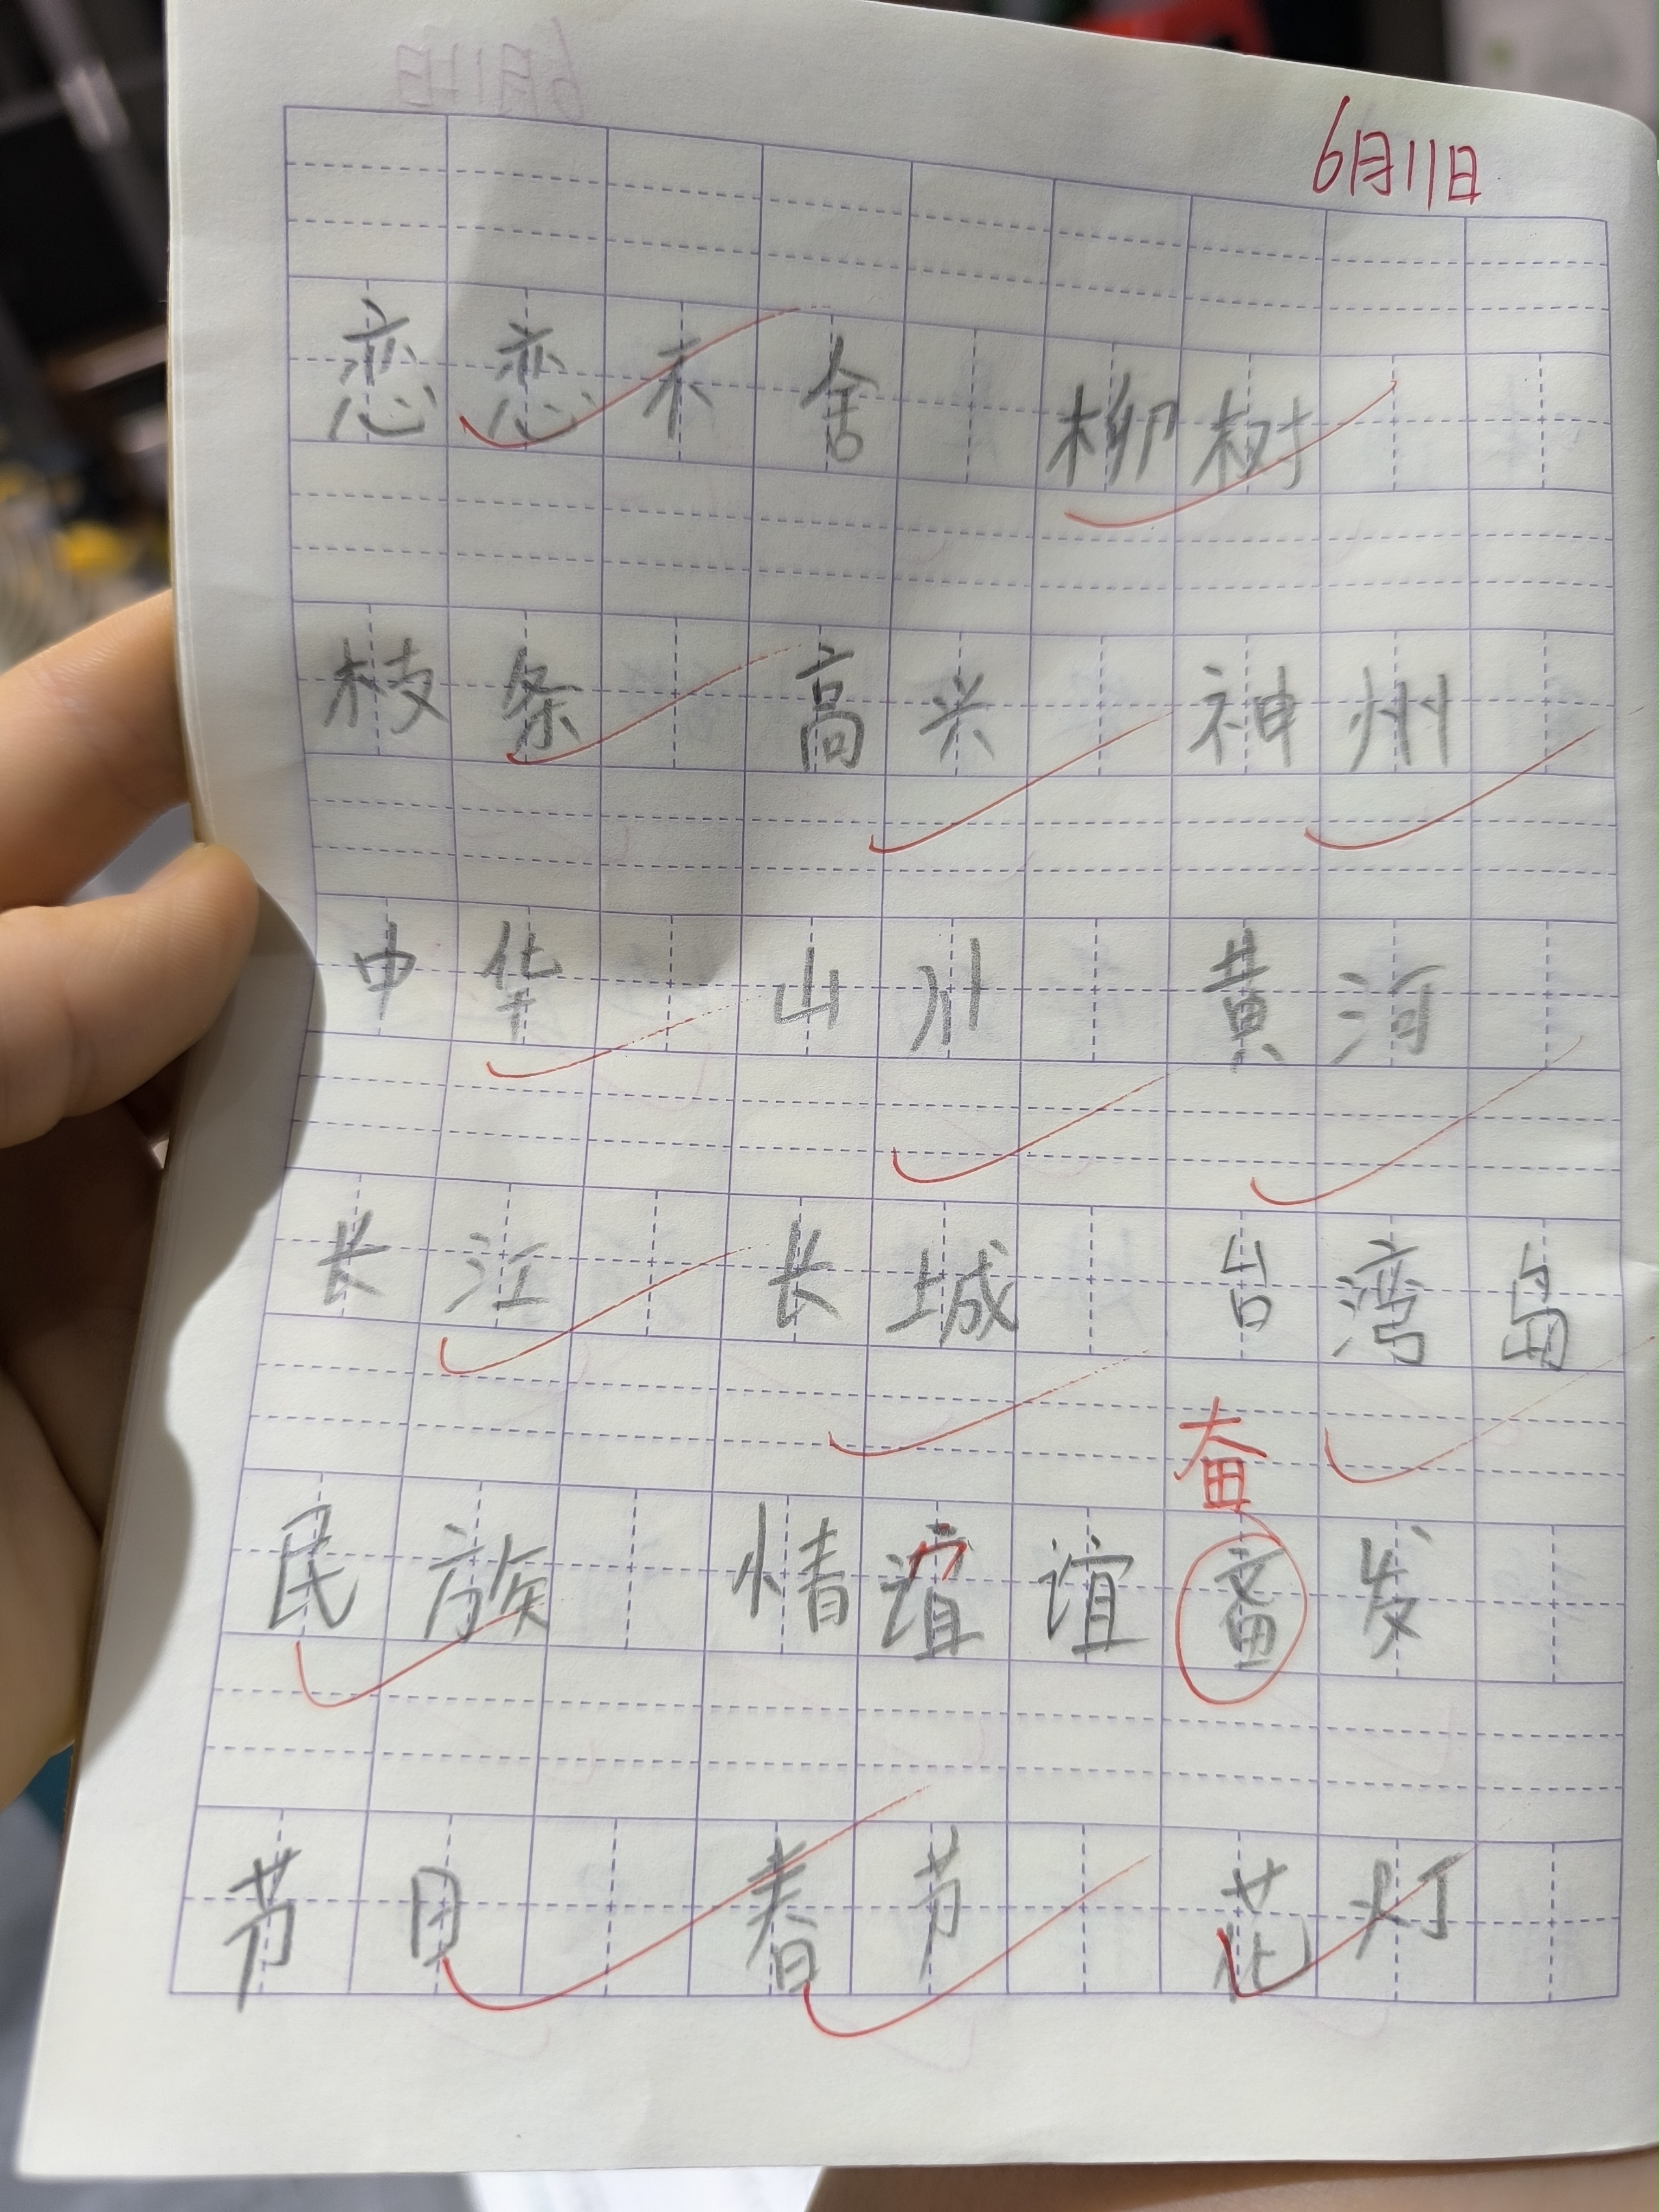 6月11日
恋恋不舍 柳树
枝条 高兴 神州
中华 山川 黄河
长江 长城 台湾岛
奋
民族 情谊谊 发
节日 春节 花灯